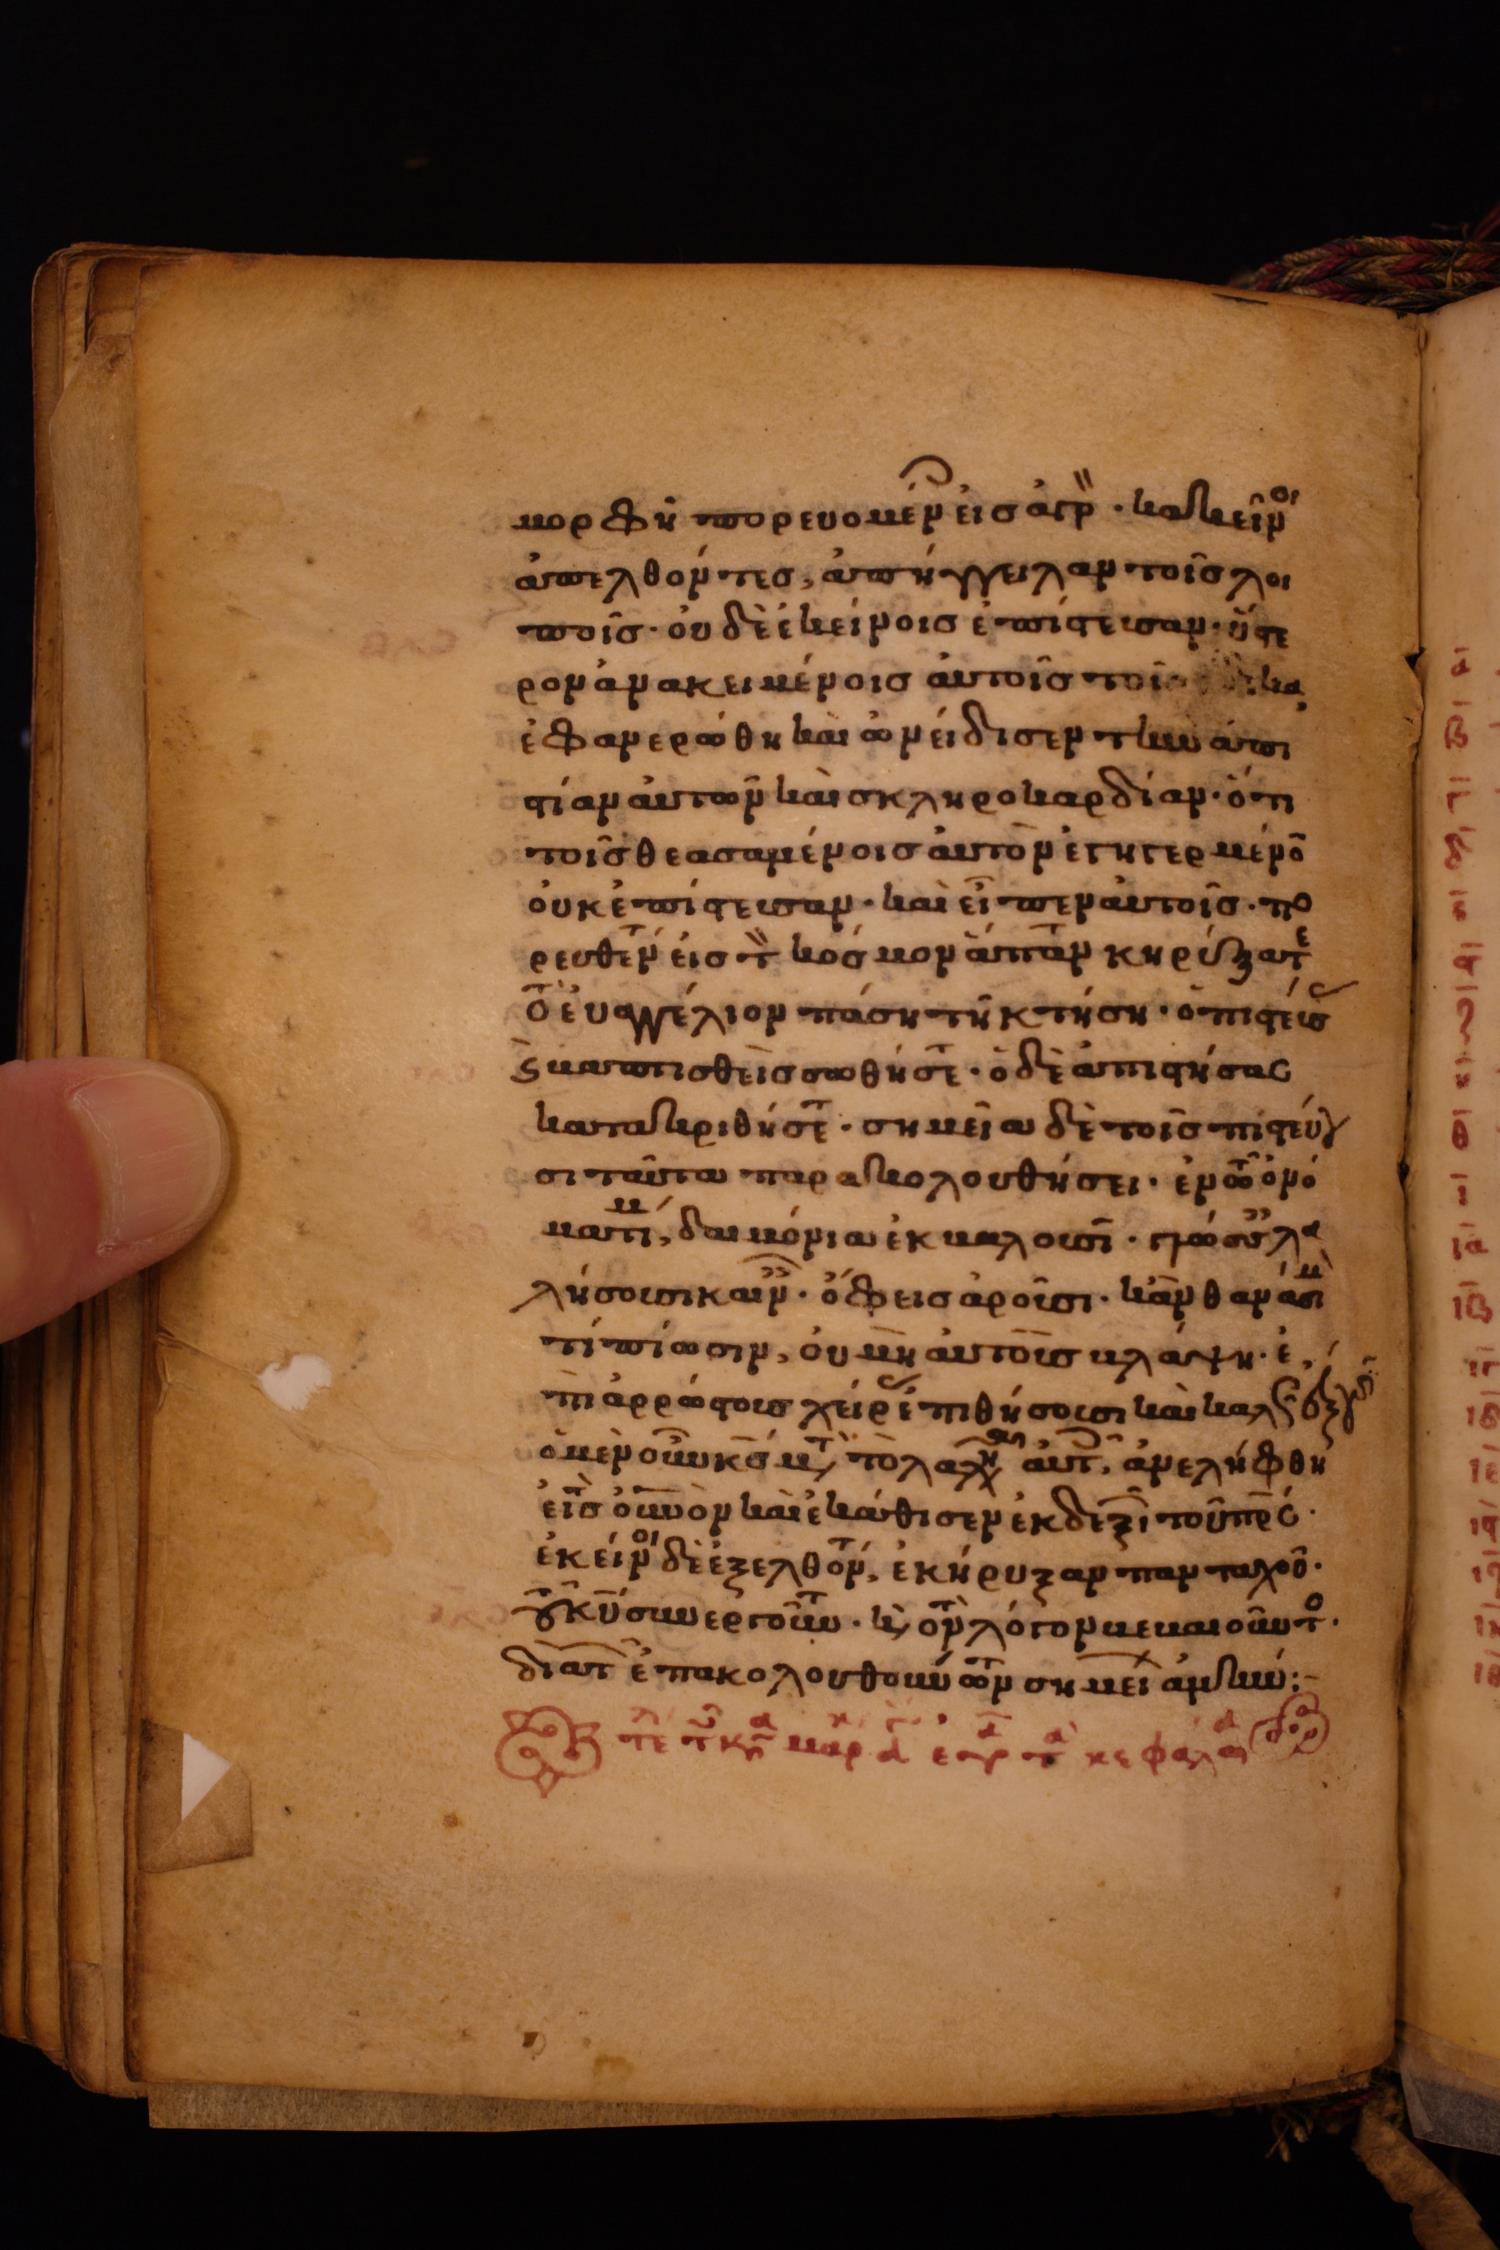 μορφῆ πορευομέν εἰσ ἀγρ · κακεῖνοι
ἀπελθόντεσ, ἀπήγγειλαν τοῖσ λοι
ποῖσ · οὐδὲ ἐκείνοισ ἐπίστευσαν · ὕστε
ρον ἀνακειμένοισ ἀυτοῖσ τοῖσ
ἐφανερώθη καὶ ὠνείδισεν τὴν ἀπι
στίαν ἀυτῶν καὶ σκληροκαρδίαν · ὅτι
τοῖσ θεασαμένοισ ἀυτὸν ἐγηγερμένο
ὀυκ ἐπίστευσαν · καὶ εἶπεν ἀυτοῖσ · πο
ρευθέν εἰσ τ κόσμον ἅπαν κηρύξατε
τὸ ἐυαγγέλιον πάση τῆ κτήση · ὁ πιστεύσ
ϗ βαπτισθεὶσ σωθήσετ · ὁ δὲ ἀπιστήσασ
κατακριθήσετ · σημεῖα δὲ τοῖσ πιστεύ
σι ταῦτα παρακολουθήσει · ἐν τῶ ὀνό
ματί μ, δαιμόνια ἐκβαλουσῖ · γλώσσ λα
λήσουσι καιν · ὄφεισ ἀροῦσι · κἂν θανάσιμ
τί πίωσιν, ὀυ μὴ ἀυτοὺσ βλάψη · ἐ
πὶ ἀρρώστουσ χεῖρ ἐπιθήσουσι καὶ καλῶσ ἕξουσ
ὁ μὲν οὖν κσ μτ τὸ λαλῆσαι ἀυτ, ἀνελήφθη
εἰσ τ οὐνὸν καὶ ἐκάθισεν ἐκ δεξι τοῦ πρσ ·
ἐκεῖνοι δὲ ἐξελθόντ, ἐκήρυξαν πανταχοῦ ·
τοῦ κυ συνεργοῦντ · ϗ τὸν λόγον βεβαιοῦντο ·
διὰ τ ἐπακολουθούν τῶν σημεί ἀμήν :–
τέλ τοῦ κατ μάρκ ἐυαγγ τὰ κεφάλαια